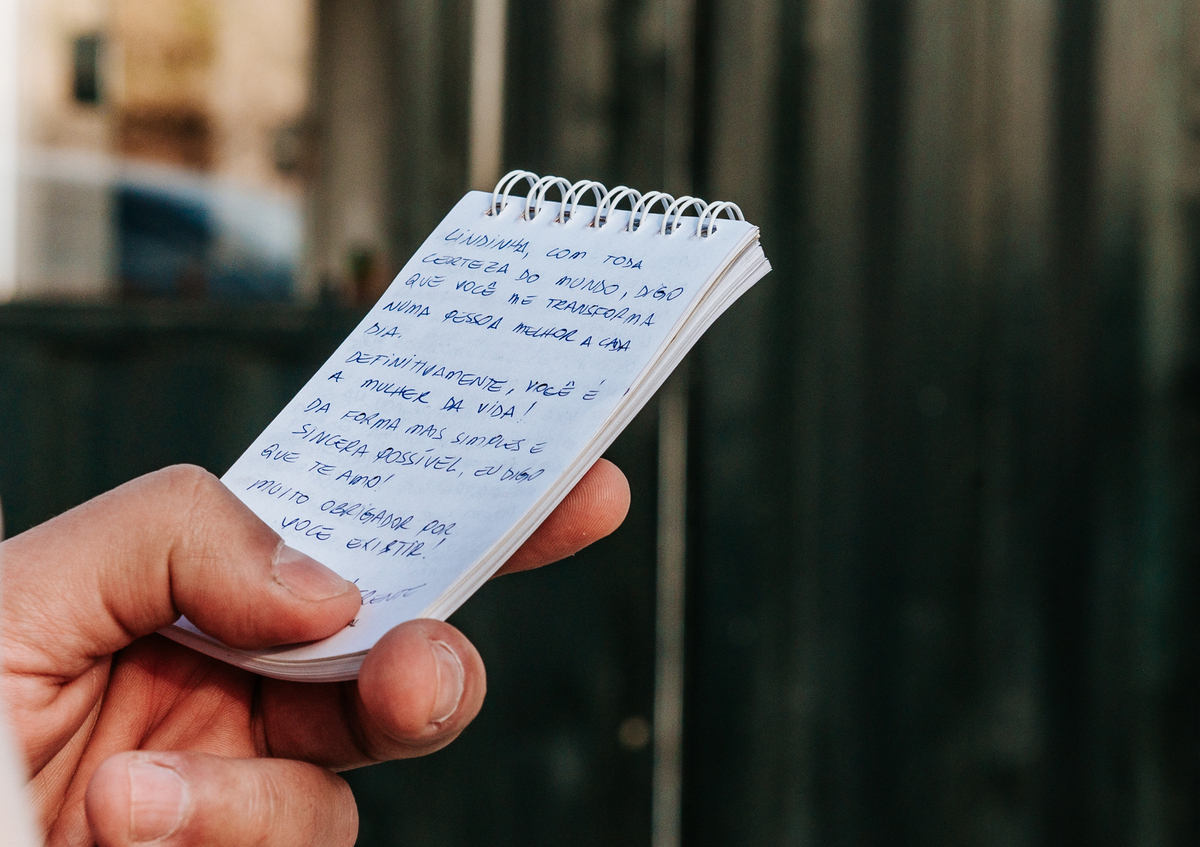 LINDINHA, COM TODA
CERTEZA DO MUNDO, DIGO
QUE VOCÊ ME TRANSFORMA
NUMA PESSOA MELHOR A CADA
DIA.
DEFINITIVAMENTE, VOCÊ É
A MULHER DA VIDA!
DA FORMA MAIS SIMPLES E
SINCERA POSSÍVEL, EU DIGO
QUE TE AMO!
MUITO OBRIGADOR POR
VOCE EXISTIR!